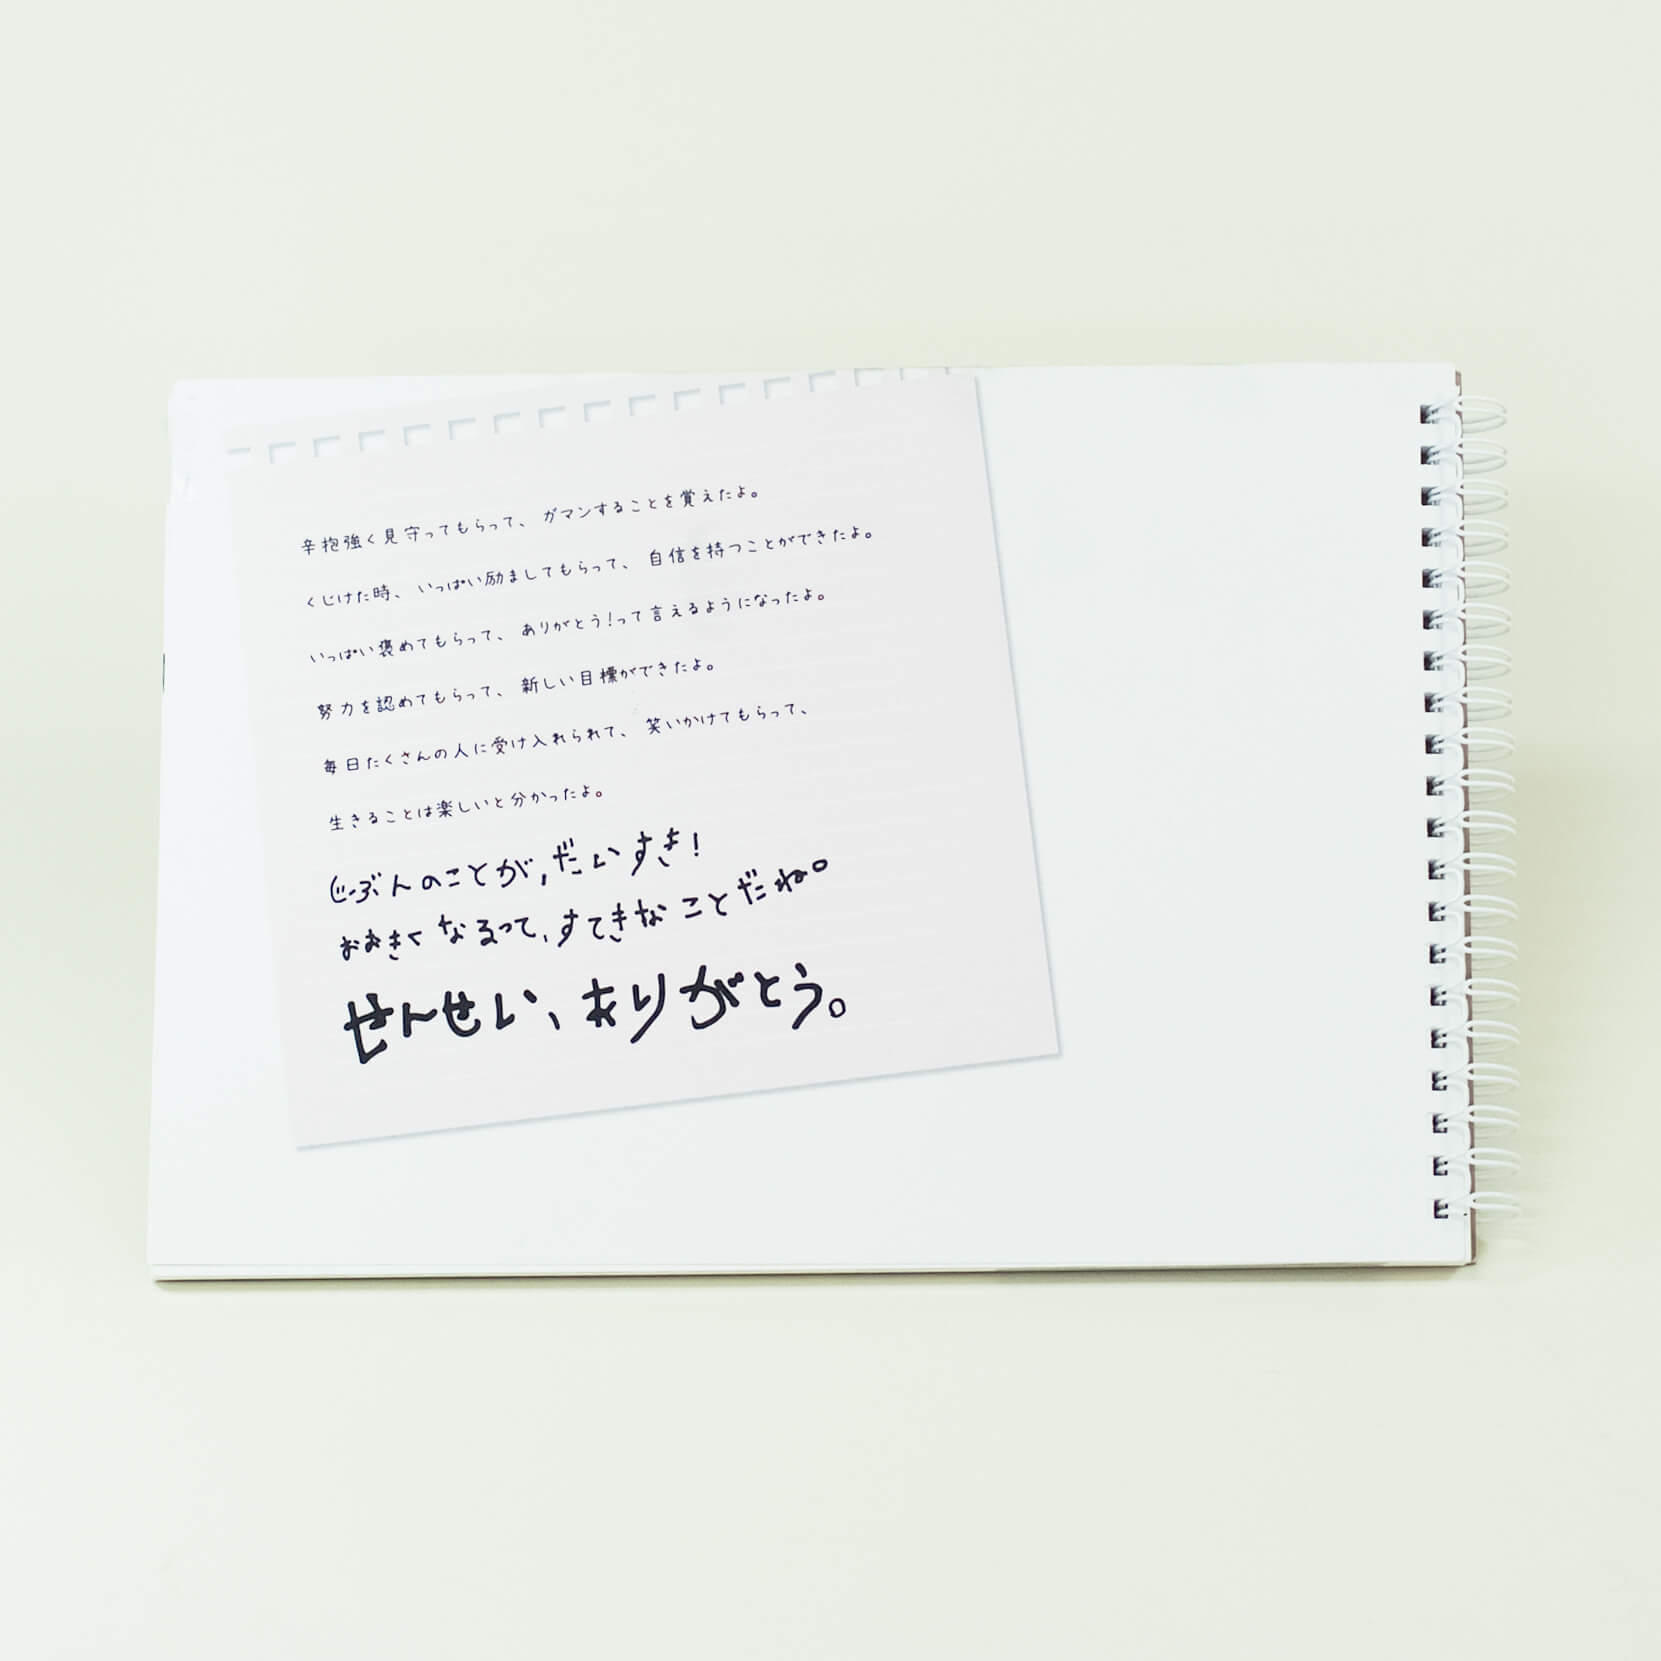 辛抱強く見守ってもらって、ガマンすることを覚えたよ。
くじけた時、いっぱい励ましてもらって、自信を持つことができたよ。
いっぱい褒めてもらって、ありがとう!って言えるようになったよ。
努力を認めてもらって、新しい目標ができたよ。
毎日たくさんの人に受け入れられて、笑いかけてもらって、
生きることは楽しいと分かったよ。
じぶんのことが、だいすき!
おおきくなるって、すてきなことだね。
せんせい、ありがとう。